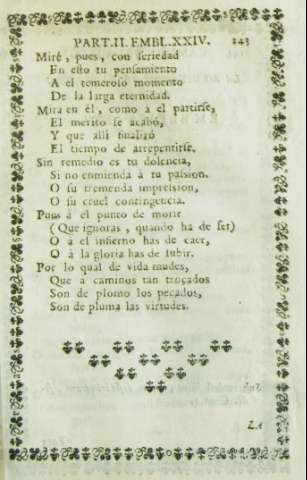 PART.II. EMBL.XXIV. 243
Mirè, pues, con ſeriedad
En eſto tu penſamiento
A el temeroſo momento
De la larga eternidad.
Mira en èl, como à el partirſe,
El merito ſe acabò,
Y que alli finalizò
El tiempo de arrepentirſe.
Sin remedio es tu dolencia,
Si no enmienda à tu paſsion,
O ſu tremenda impreſsion,
O ſu cruel contingencia.
Pues à el punto de morir
(Que ignoras, quando ha de ſer)
O à el infierno has de caer,
O à la gloria has de ſubir.
Por lo qual de vida mudes,
Que a caminos tan trocados
Son de plomo los pecados,
Son de pluma las virtudes.
LA